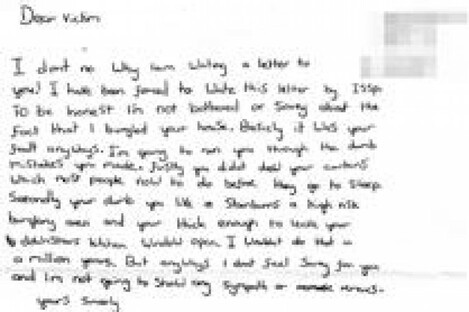 Dear Victim
I dont no Why Iam Writing a letter to
you! I have been forced to Write this letter by ISSP.
To be honest I'm not bothered or Sorry about the
fact that I burgled your house. Basicly it Was your
fault anyways. I'm going to run you through the dumb
mistakes you made. Firstly you didnt draw your curtains
Which most people now to do before they go to Sleep.
Secondly your dumb you live in Stainburn a high risk
burglary area and your thick enough to leave your
downstairs kitchen Window open. I Wouldnt do that in
a million years. But anyways I dont feel Sorry for you
and I'm not going to Show any Sympath or remores.
yours